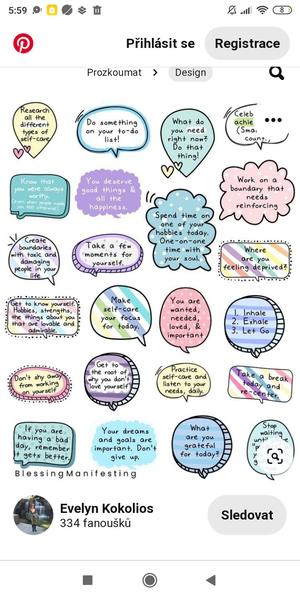 5:59
8
Přihlásit se
Registrace
Prozkoumat
Design
Research
all the
different
types of
self-care
Do something
on your to-do
list!
What do
you need
right now?
Do that
thing!
Celeb
achie
Sma
count
Know that
you were always
worthy.
You deserve
good things &
all the
happiness.
Spend time on
one of your
hobbies today.
One-on-one
time with
your soul.
Work on a
boundary that
needs
reinforcing
Create
boundaries
with toxic and
damaging
people in your
life
Take a few
moments for
yourself.
Where are
you feeling deprived?
Get to know yourself.
Hobbies, strengths,
the things about you
that are lovable and
admirable.
Make
self-care
your focus
for today.
You are
wanted,
needed,
loved, &
important
1. Inhale
2. Exhale
3. Let Go
Don't shy away
from working
on yourself
Get to
the root of
why you don't
love yourself
Practice
self-care and
listen to your
needs, daily.
Take a break
today and
re-center.
If you are
having a bad
day, remember
it gets better.
Your dreams
and goals are
important. Don't
give up.
What
are you
grateful
for today?
Stop
waiting
BlessingManifesting
Evelyn Kokolios
334 fanoušků
Sledovat